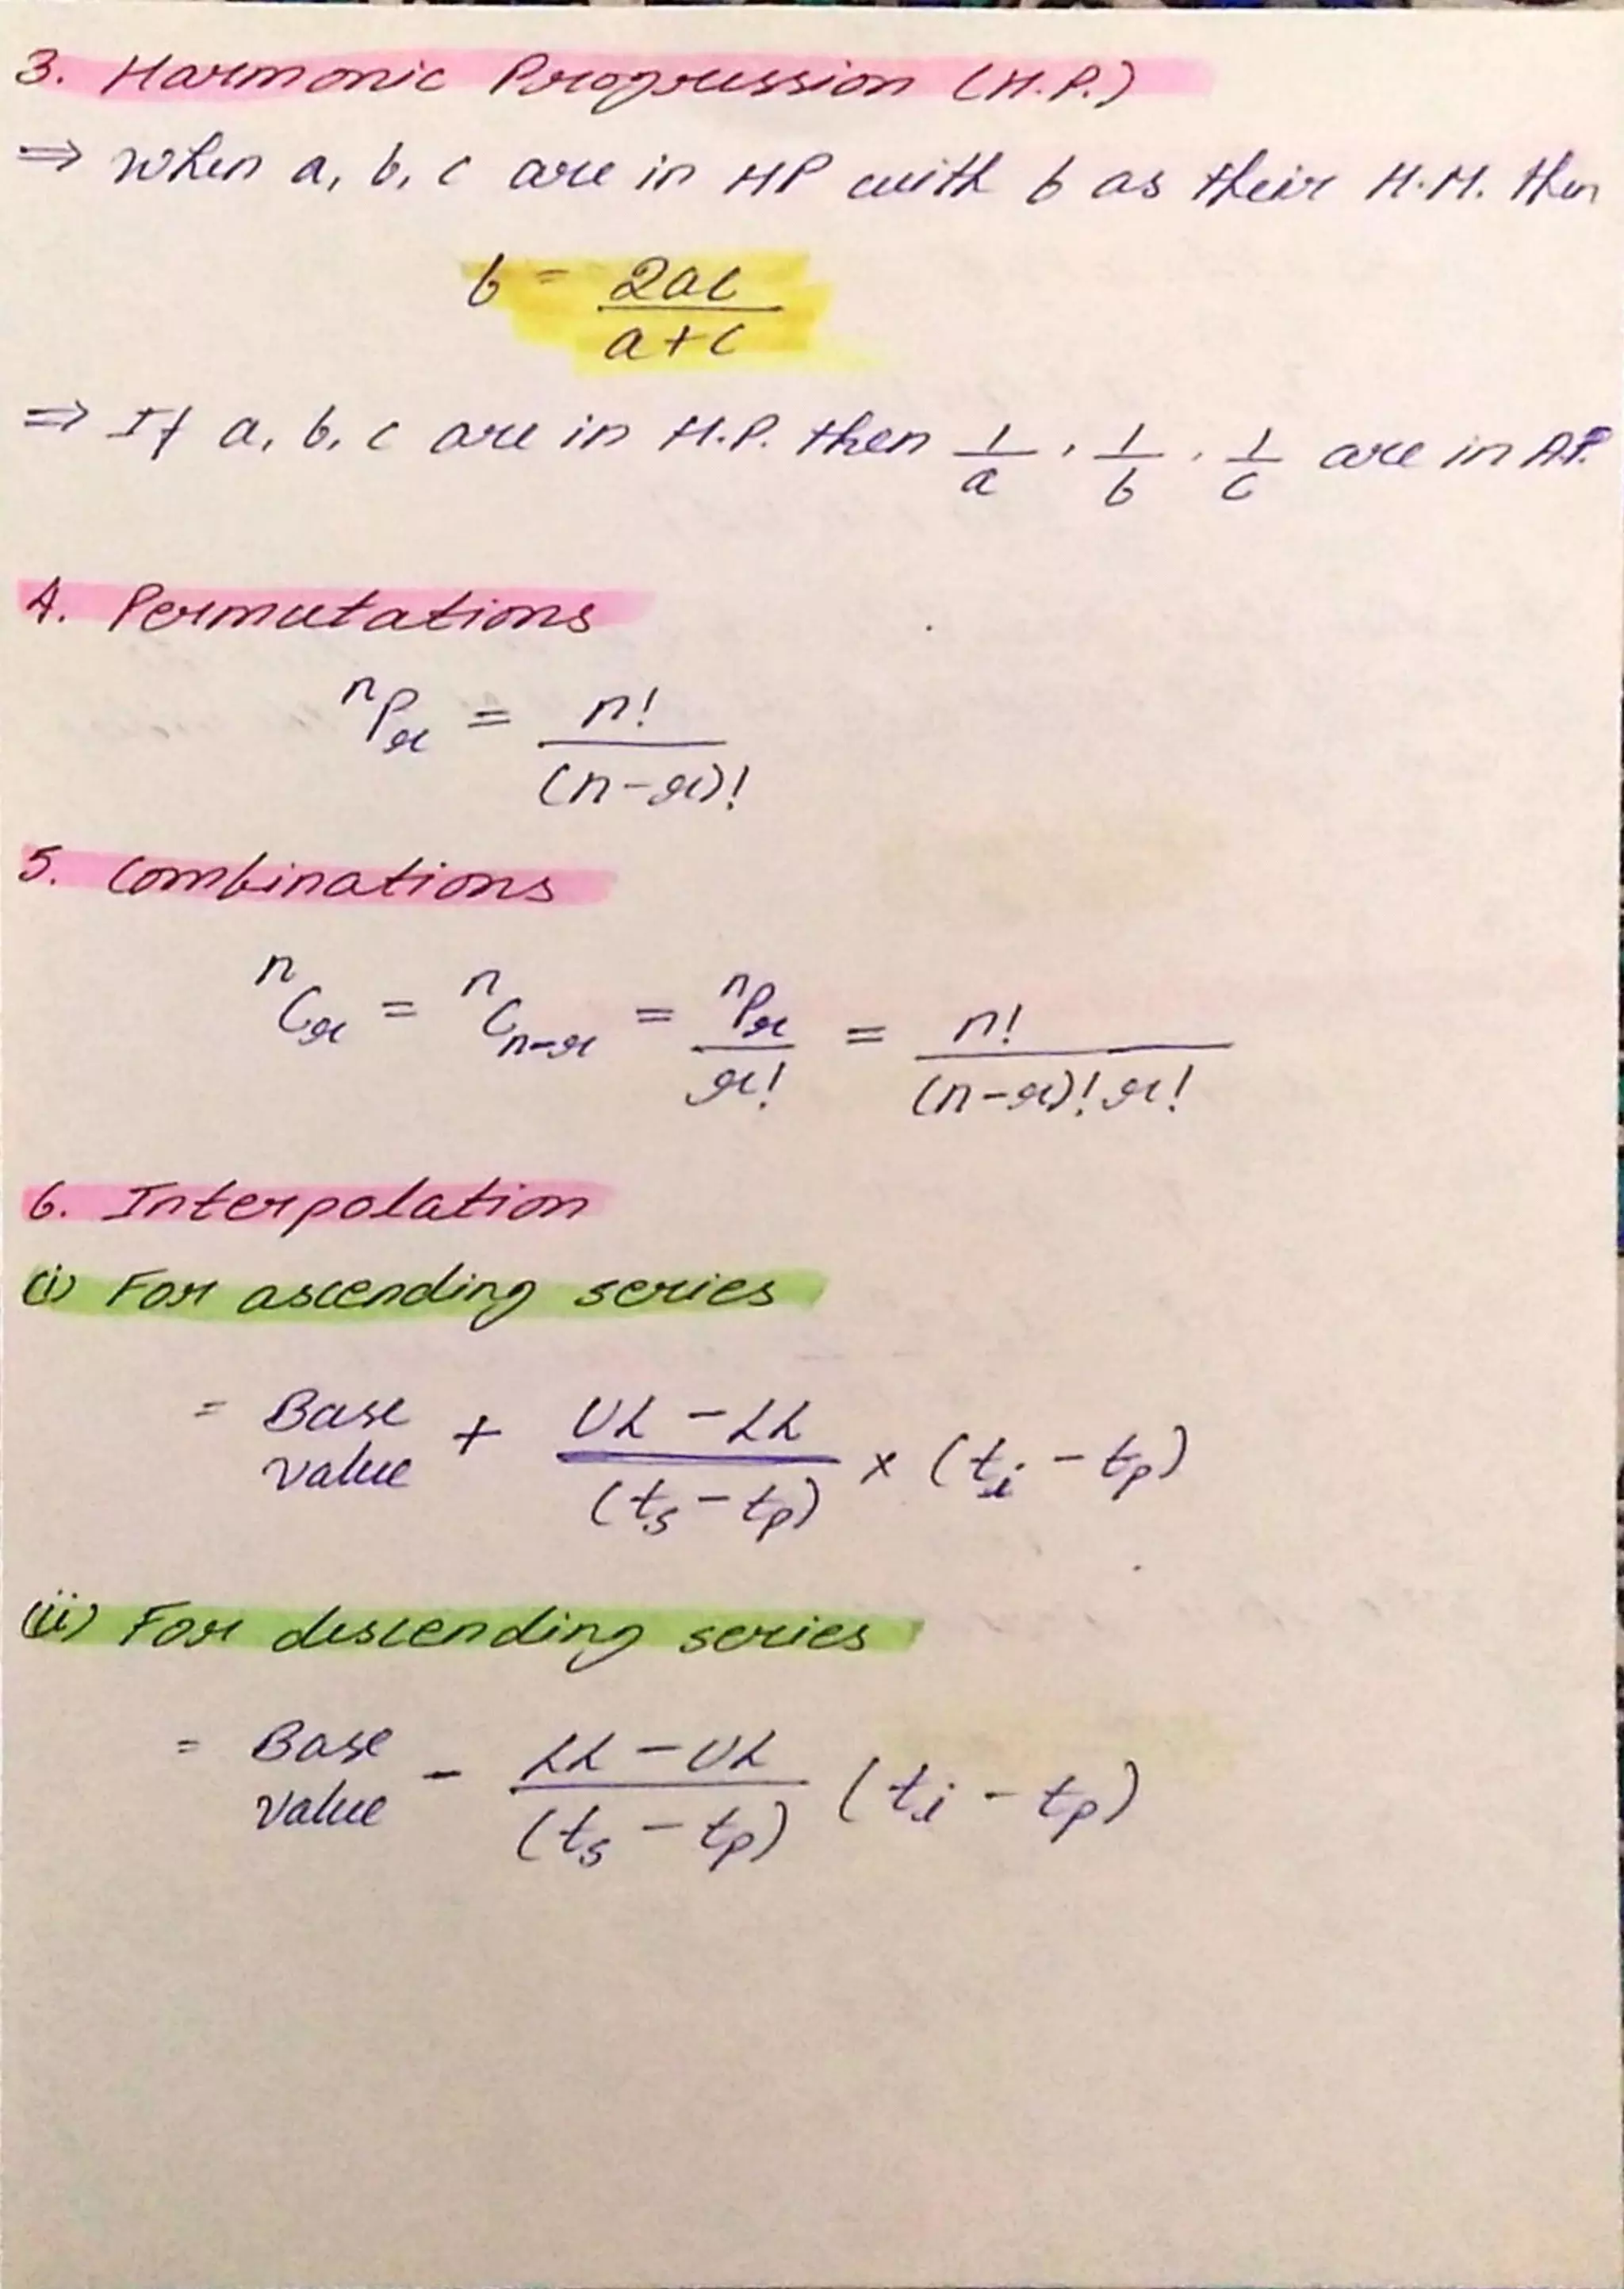 3. Harmonic Progression (H.P.)
⇒ when a, b, c are in HP with b as their H.M. then
b = 2ac / a+c
⇒ If a, b, c are in H.P. then 1/a, 1/b, 1/c are in A.P.
4. Permutations
ⁿPᵣ = n! / (n-r)!
5. Combinations
ⁿCᵣ = ⁿCₙ₋ᵣ = ⁿPᵣ / r! = n! / (n-r)! r!
6. Interpolation
(i) For ascending series
= Base value + UL - LL / (ts - tp) × (ti - tp)
(ii) For descending series
= Base value - LL - UL / (ts - tp) (ti - tp)